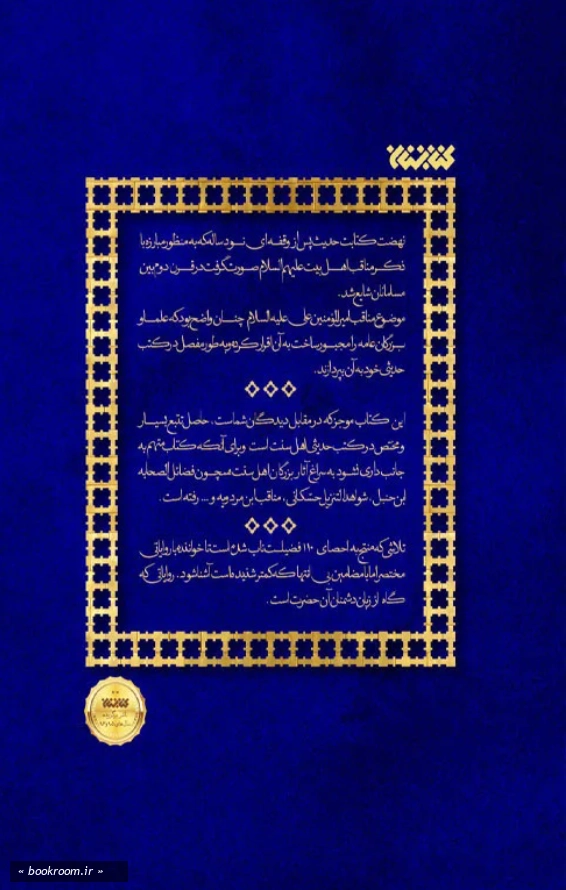 کتابستان
نهضت کتابت حدیث پس از وقفه ای نود ساله که به منظور مبارزه با
ذکر مناقب اهل بیت علیهم السلام صورت گرفت در قرن دوم بین
مسلمانان شایع شد.
موضوع مناقب امیرالمومنین علی علیه السلام چنان واضح بود که علما و
بزرگان عامه را مجبور ساخت به آن اقرار کرده و به طور مفصل در کتب
حدیثی خود به آن بپردازند.
این کتاب موجز که در مقابل دیدگان شماست، حاصل تتبع بسیار
و مختص در کتب حدیثی اهل سنت است و برای آنکه کتاب متهم به
جانب داری نشود به سراغ آثار بزرگان اهل سنت همچون فضائل الصحابه
ابن حنبل، شواهد التنزیل حسکانی، مناقب ابن مردویه و ... رفته است.
تلاشی که منتج به احصای ۱۱۰ فضیلت ناب شده است تا خواننده با روایاتی
مختصر اما با مضامین بی انتها که کمتر شنیده است آشنا شود. روایاتی که
گاه از زبان دشمنان آن حضرت است.
« bookroom.ir »